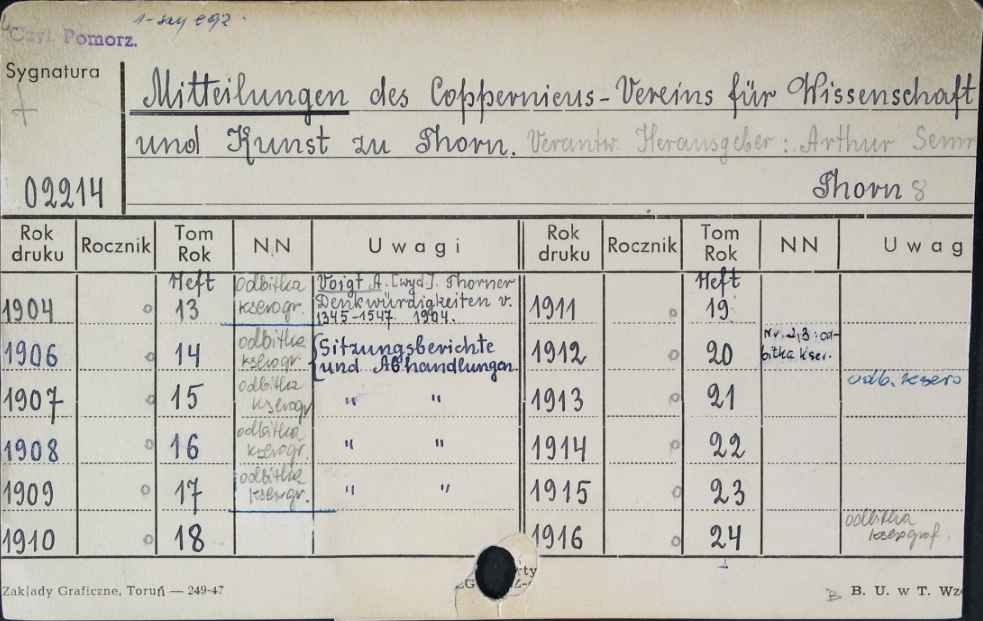 1-szy egz.
Czyt. Pomorz.
Sygnatura
Mitteilungen des Coppernicus-Vereins für Wissenschaft
und Kunst zu Thorn. Verantw. Herausgeber: Arthur
02214
Thorn 8
Rok druku Rocznik Tom Rok NN Uwagi Rok druku Rocznik Tom Rok NN Uwag
Heft odbitka Voigt A. [wyd]. Thorner Heft
1904 o 13 kserogr. Denkwürdigkeiten v. 1911 o 19
1345-1547. 1904.
odbitka {Sitzungsberichte Nr. 2,3: od-
1906 o 14 kserogr. und Abhandlungen. 1912 o 20 bitka kser.
odbitka odb. ksero
1907 o 15 kserogr " " 1913 o 21
odbitka
1908 o 16 kserogr. " " 1914 o 22
odbitka
1909 o 17 kserogr. " " 1915 o 23
odbitka
1910 o 18 1916 o 24 kserograf.
Zakłady Graficzne, Toruń — 249-47
B B. U. w T. Wz